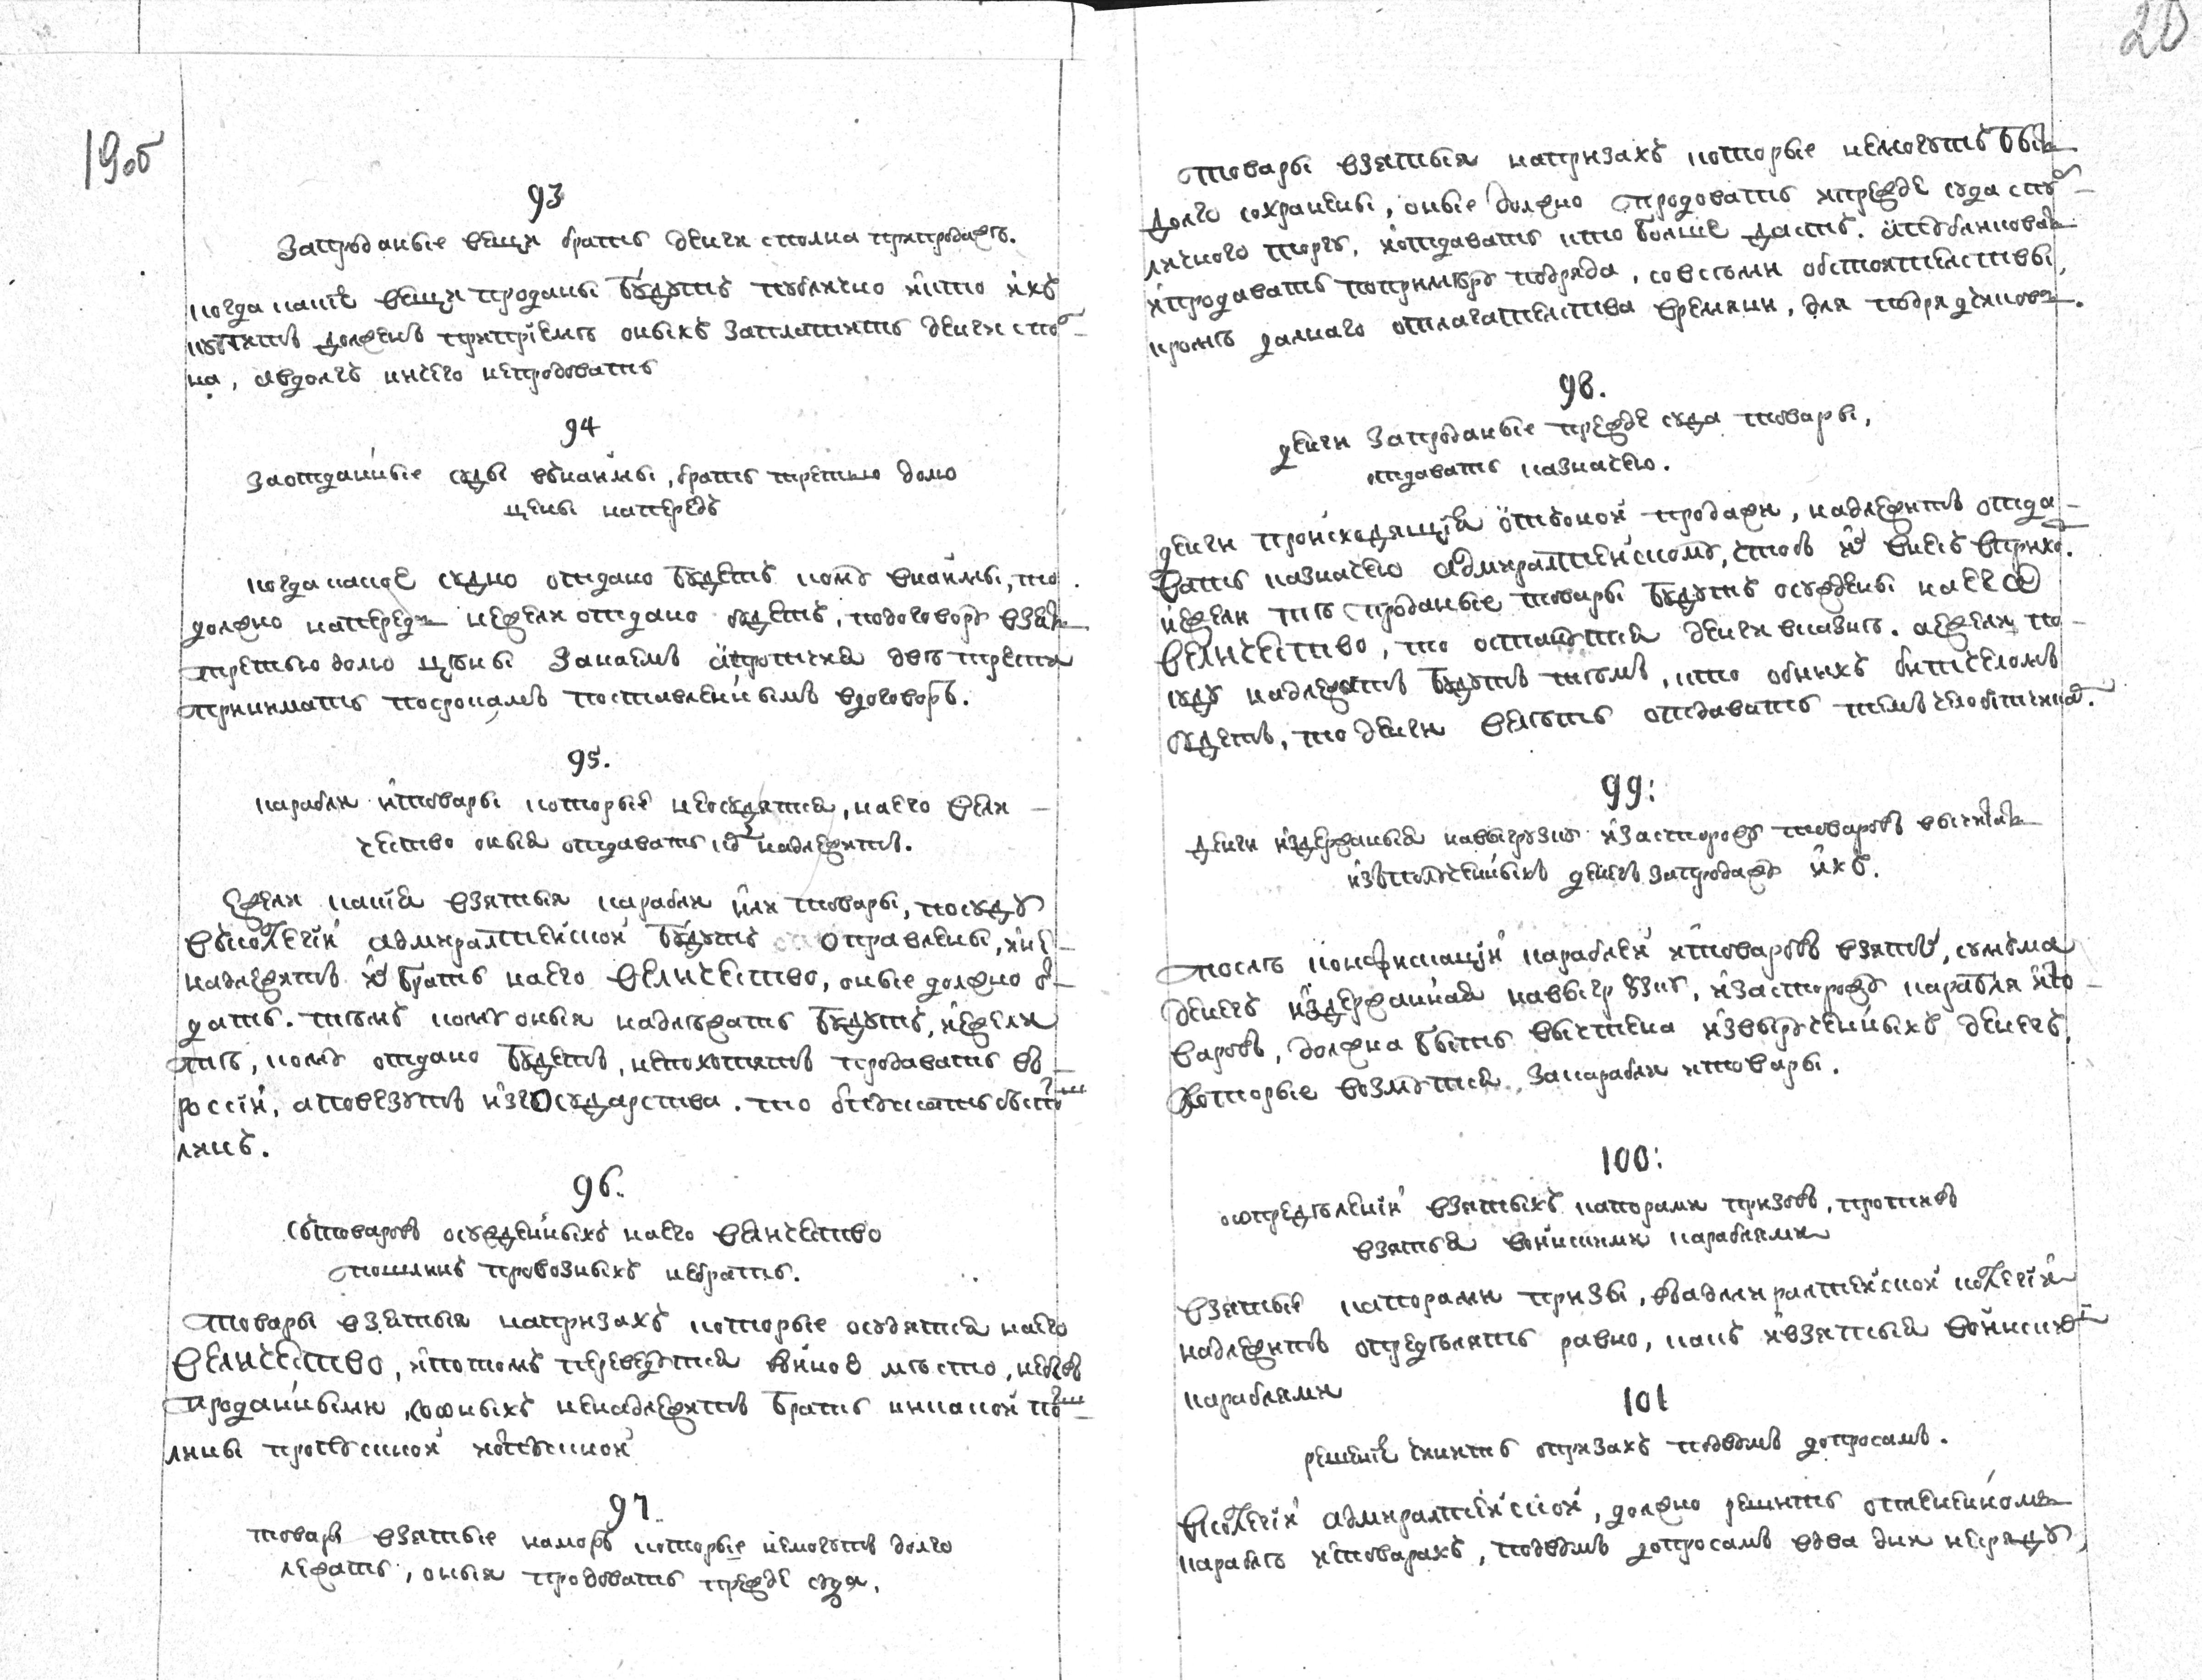 19об
93
Запроданые вещи брать денги сполна припродаже.
когда какие вещи проданы будутъ публично икто ихъ
купитъ долженъ приприемѣ оныхъ заплатить денги спол
на, авдолгъ ничего непродовать
94
Заотданные суды внаймы, брать третью долю
цены напередъ
когда какое судно отдано будетъ кому внаймы, то
должно напередъ нежели отдано будетъ, подоговору взять
третью долю цѣны Занаемъ апротчия двѣ трети
принимать посрокамъ поставленнымъ вдоговорѣ.
95.
карабли итовары которые неосудятся, наего вели
чество оныя отдавать кому надлежитъ.
Ежели какия взятыя карабли или товары, посуду
вколегии адмиралтейской будутъ оправлены, ине
надлежитъ ихъ брать наего величество, оные должно от
дать. тѣмъ кому оныя надлежать будутъ, ижели
тѣ, кому отдано будетъ, непохотятъ продавать въ
россии, аповезутъ изгосударства. то отпускать безпош
линъ.
96.
Стоваровъ осужденныхъ наего величество
пошлинъ провозныхъ небрать.
Товары взятыя напризахъ которые осудятся наего
величество, ипотомъ переведутся виное мѣсто, небывъ
проданными, соныхъ ненадлежитъ брать никакой пош
лины провозной ивывозной
97.
товары взятые наморѣ которые немогутъ долго
лежать, оныя продовать прежде суда.
20
товары взятыя напризахъ которые немогутъ быть
долго сохранены, оные должно продовать ипрежде суда спуб
личного торгу, иотдавать кто больше дастъ. апубликовать
ипродавать попримѣру подряда, совсѣми обстоятелствы,
кромѣ далнаго отлагателства времяни, для подрядчиковъ.
98.
денги Запроданые прежде суда товары,
отдавать казначею.
денги происходящия отоной продажи, надлежитъ отда
вать казначею адмиралтейскому, чтобъ ихъ внесъ вприхо.
иежели тѣ проданые товары будутъ осуждены наего
величество, то останутся денги вказнѣ. аежели по
суду надлежатъ будутъ тѣмъ, кто обнихъ битьчеломъ
будетъ, то денги велѣть отдавать тѣмъ челобитчикамъ.
99:
денги издержаныя навыгрузку изасторожу товаровъ вычитать
изполученныхъ денегъ запродажу ихъ.
послѣ конфискации караблей итоваровъ взятыхъ, сумма
денегъ издержанная навыгрузку, изасторожу карабля ито
варовъ, должна быть вычтена извырученныхъ денегъ,
которые возмутся Закарабли итовары.
100:
оопределении взятыхъ капорами призовъ, противъ
взятыя воинскими караблями
взятые капорами призы, вадмиралтейской колегии
надлежитъ определять равно, какъ ивзятыя воинскими
караблями
101
решение чинить опризахъ подвумъ допросамъ.
вколегии адмиралтейской, должно решить отмененномъ
караблѣ итоварахъ, подвумъ допросамъ вдва дни несряду,